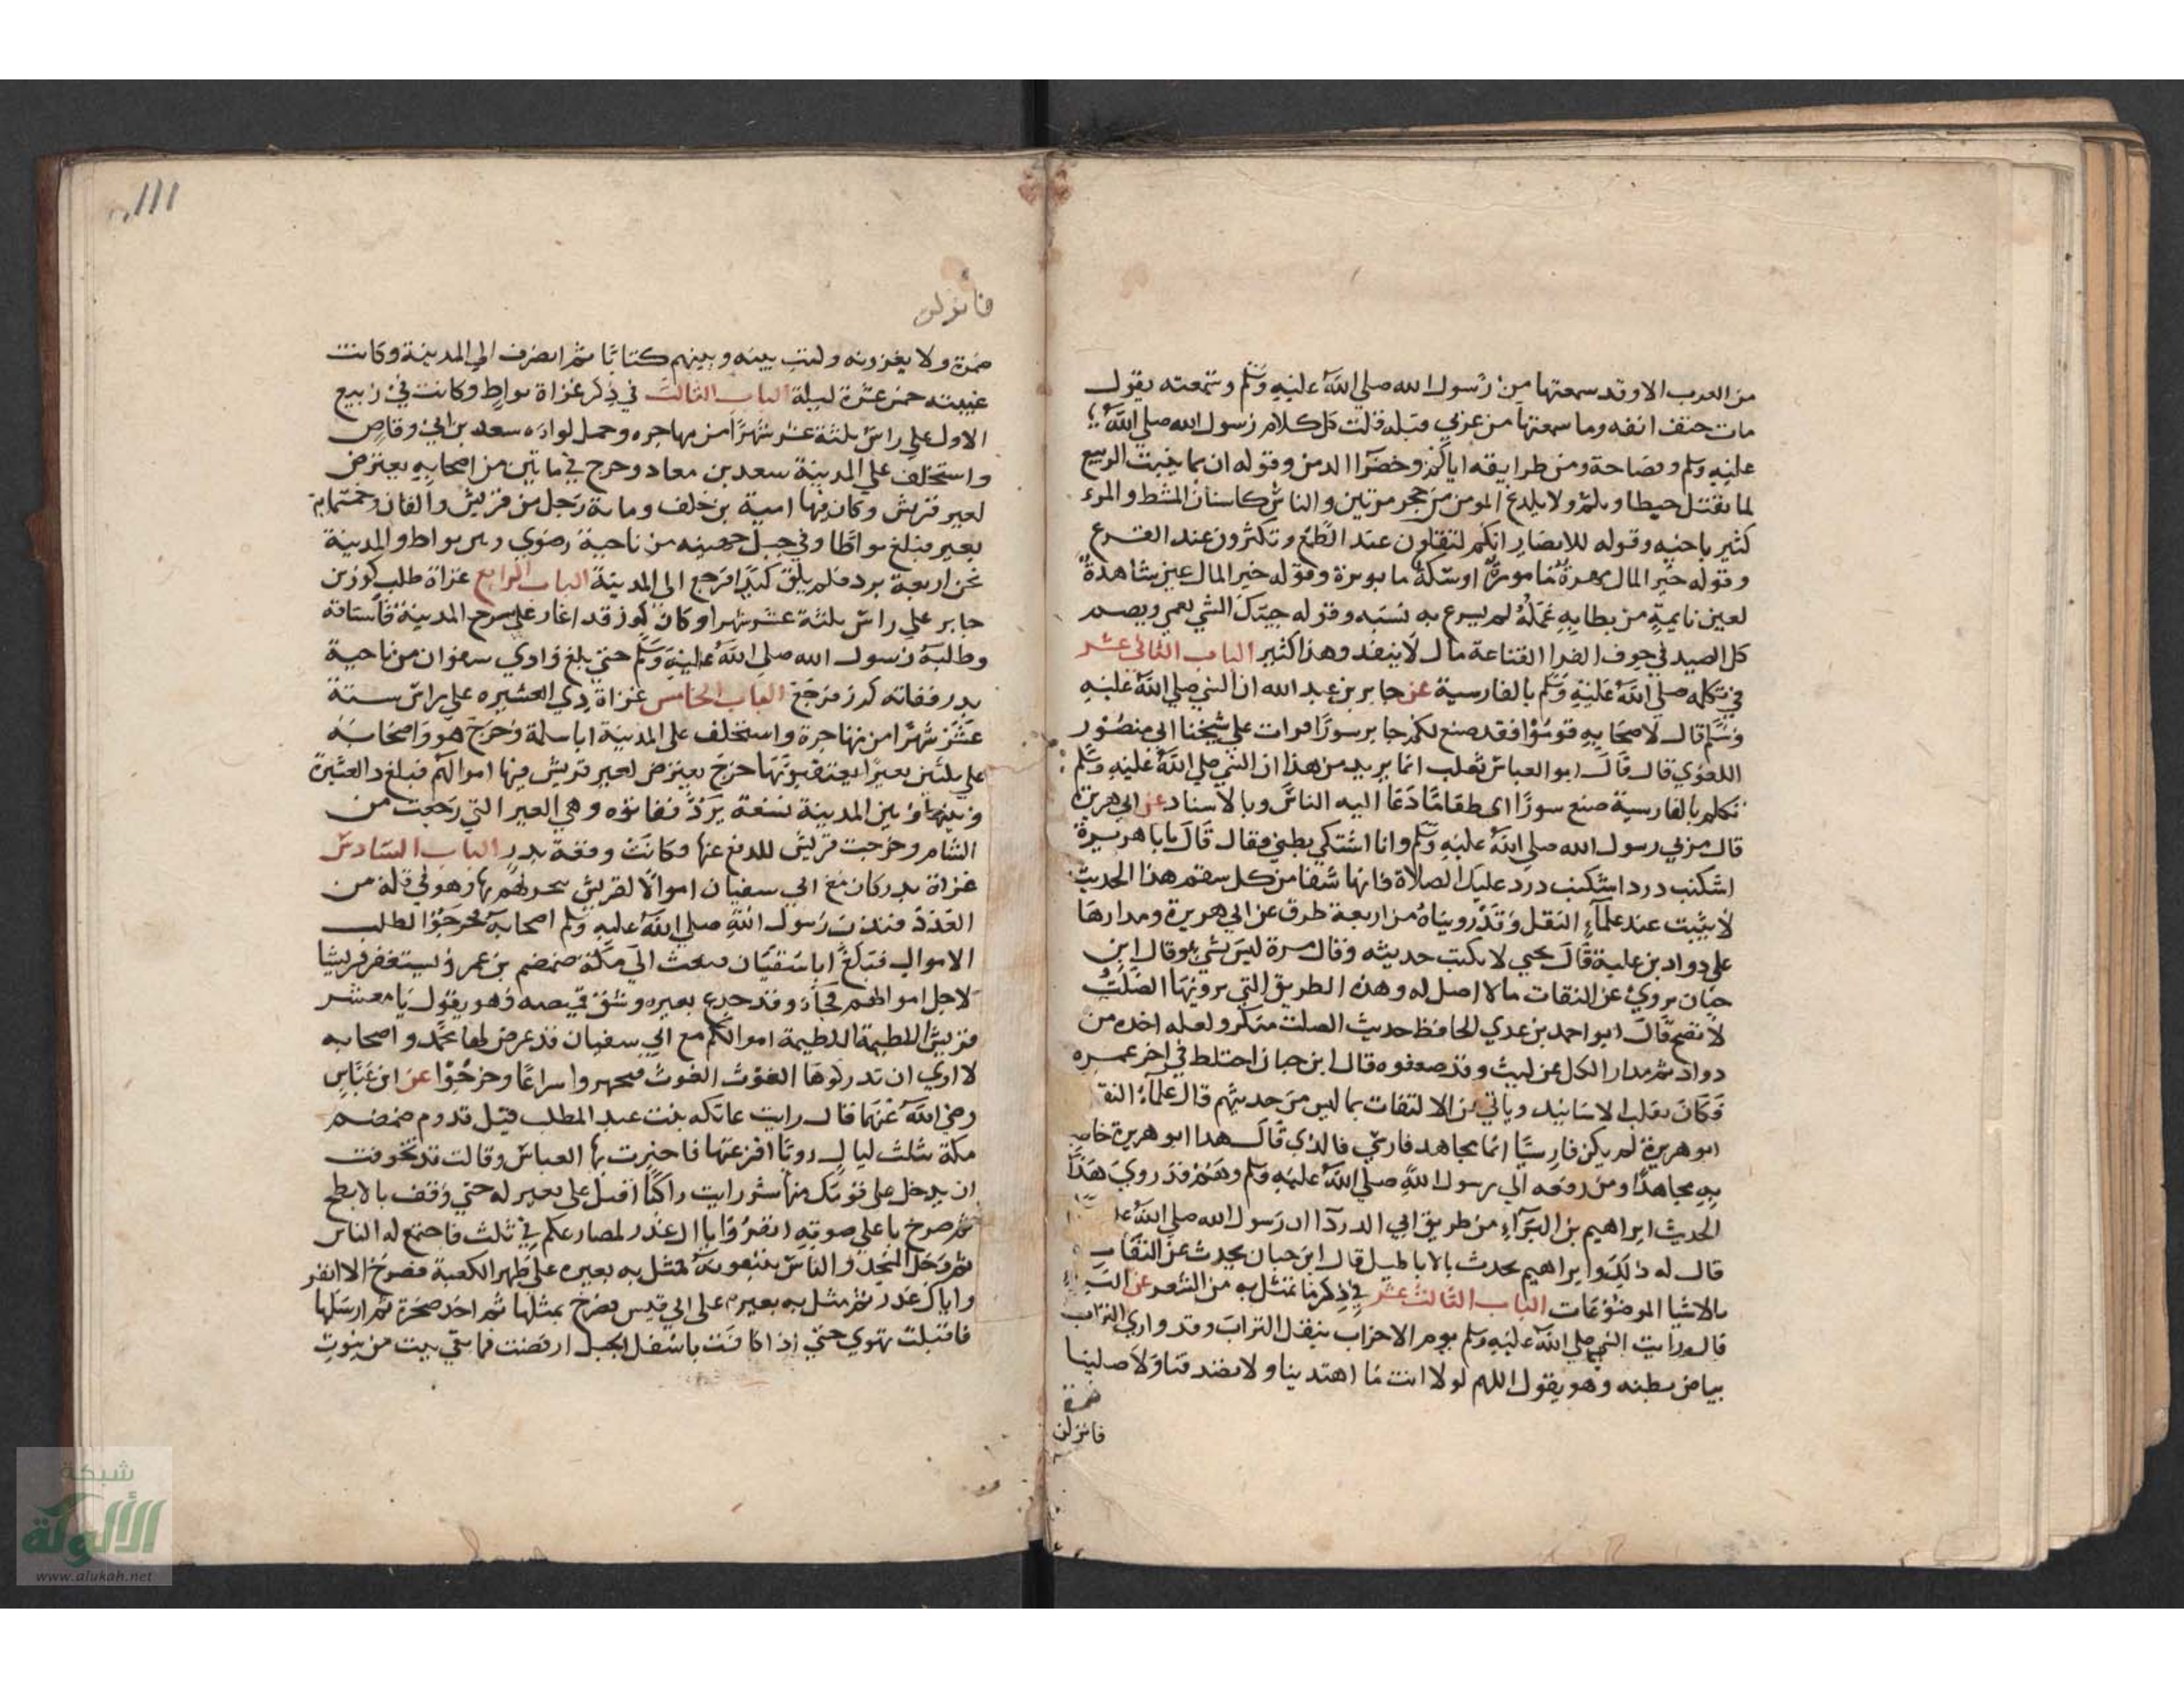 من العرب الا وقد سمعتها من رسول الله صلي الله عليه وسلم وسمعته يقول
مات حتف انفه وما سمعتها من عربي قبله قلت كل كلام رسول الله صلي الله
عليه وسلم فصاحة ومن طرايقه اياكم وخضرا الدمن وقوله ان مما ينبت الربيع
لما يقتل حبطا او يلم ولا يلدغ المومن من جحر مرتين والناس كاسنان المشط والمرء
كثير باخيه وقوله للانصار انكم لتقلون عند الطمع وتكثرون عند الفزع
وقوله خير المال مهرة مامورة او سكة مابورة وقوله خير المال عين ساهدة
لعين نايمة من بطا به عمله لم يسرع به نسبه وقوله حبك الشي يعمي ويصم
كل الصيد في جوف الفرا القناعة مال لا ينفد وهذا كثير الباب الثاني عشر
في تكلمه صلي الله عليه وسلم بالفارسية عن جابر بن عبد الله ان النبي صلي الله عليه
وسلم قال لاصحابه قوموا فقد صنع لكم جابر سورا قرات علي شيخنا ابي منصور
اللغوي قال قال ابو العباس ثعلب انما يريد من هذا ان النبي صلي الله عليه وسلم
تكلم بالفارسية صنع سورا اي طعاما دعا اليه الناس وبالاسناد عن ابي هريرة
قال مر بي رسول الله صلي الله عليه وسلم وانا اشتكي بطني فقال قال يابا هريرة
اشكنب درد اشكنب درد عليك الصلاة فانها شفا من كل سقم هذا الحديث
لا يثبت عند علماء النقل وقد رويناه من اربعة طرق عن ابي هريرة ومدارها
علي دواد بن علبة قال يحيي لا يكتب حديثه وقال مرة ليس بشي وقال ابن
حبان يروي عن الثقات ما لا اصل له وهذه الطريق التي يرويها الصلت
لا تصح قال ابو احمد بن عدي الحافظ حديث الصلت منكر ولعله اخذه من
دواد ثم مدار الكل عن ليث وقد ضعفوه قال ابن حبان اختلط في اخر عمره
فكان يقلب الاسانيد وياتي عن الثقات بما ليس من حديثهم قال علماء النقل
ابو هريرة لم يكن فارسيا انما مجاهد فارسي فالذي قال هذا ابو هريرة خاطب
به مجاهدا ومن رفعه الي رسول الله صلي الله عليه وسلم وهم وقد روي هذا
الحديث ابراهيم بن البراء من طريق ابي الدردا ان رسول الله صلي الله
قال له ذلك وابراهيم يحدث بالاباطيل قال ابن حبان يحدث عن الثقات
بالاشيا الموضوعات الباب الثالث عشر في ذكر ما تمثل به من الشعر عن البراء
قال رايت النبي صلي الله عليه وسلم يوم الاحزاب ينقل التراب وقد واري التراب
بياض بطنه وهو يقول اللهم لولا انت ما اهتدينا ولا تصدقنا ولا صلينا
ضمرة
فانزلن
فانزلن
ضمرة ولا يغزونه وكتب بينه وبينهم كتابا ثم انصرف الي المدينة وكانت
غيبته خمس عشرة ليلة الباب الثالث في ذكر غزاة بواط وكانت في ربيع
الاول علي راس ثلثة عشر شهرا من مهاجره وحمل لواه سعد بن ابي وقاص
واستخلف علي المدينة سعد بن معاد وخرج في مايتين من اصحابه يعترض
لعير قريش وكان فيها امية بن خلف وماية رجل من قريش والفان وخمسماية
بعير فبلغ بواطا وفي جبل جهينه من ناحية رضوي وبين بواط والمدينة
نحو اربعة برد فلم يلق كيدا فرجع الي المدينة الباب الرابع غزاة طلب كرز بن
جابر علي راس ثلثة عشر شهرا وكان كرز قد اغار علي سرح المدينة فاستاقه
وطلبه رسول الله صلي الله عليه وسلم حتي بلغ وادي سفوان من ناحية
بدر ففاته كرز فرجع الباب الخامس غزاة ذي العشيره علي راس ستة
عشر شهرا من مهاجره واستخلف علي المدينة ابا سلمة وخرج هو واصحابه
علي ثلثين بعيرا يعتقبونها خرج يعترض لعير قريش فيها اموالهم فبلغ ذ العشيرة
وبينها وبين المدينة تسعة برد ففاتوه وهي العير التي رجعت من
الشام وخرجت قريش للدفع عنها وكانت وقعة بدر الباب السادس
غزاة بدر كان مع ابي سفيان اموالا لقريش وهو في قلة من
العدد فندب رسول الله صلي الله عليه وسلم اصحابه فخرجوا لطلب
الاموال فبلغ ابا سفيان فبعث الي مكة ضمضم بن عمرو يستغفر قريشا
لاجل اموالهم فجاء وقد جدع بعيره وشق قميصه وهو يقول يا معشر
قريش اللطيمة اللطيمة اموالكم مع ابي سفيان قد عرض لها محمد واصحابه
لا اري ان تدركوها الغوث الغوث فتجهزوا سراعا وخرجوا عن ابن عباس
رضي الله عنهما قال رايت عاتكه بنت عبد المطلب قبل قدوم ضمضم
مكة بثلث ليال رويا افزعتها فاخبرت بها العباس وقالت قد تخوفت
ان يدخل علي قومك منها شر رايت راكبا اقبل علي بعير له حتي وقف بالابطح
ثم صرخ باعلي صوته انفروا يا ال غدر لمصارعكم في ثلث فاجتمع له الناس
ثم دخل المسجد والناس يتبعونه فمثل به بعيره علي ظهر الكعبة فصرخ الا انفر
وا يا ال غدر ثم مثل به بعيره علي ابي قبيس فصرخ بمثلها ثم اخذ صخرة ثم ارسلها
فاقبلت تهوي حتي اذا كانت باسفل الجبل ارفضت فما بقي بيت من بيوت
111
شبكة
الألوكة
www.alukah.net